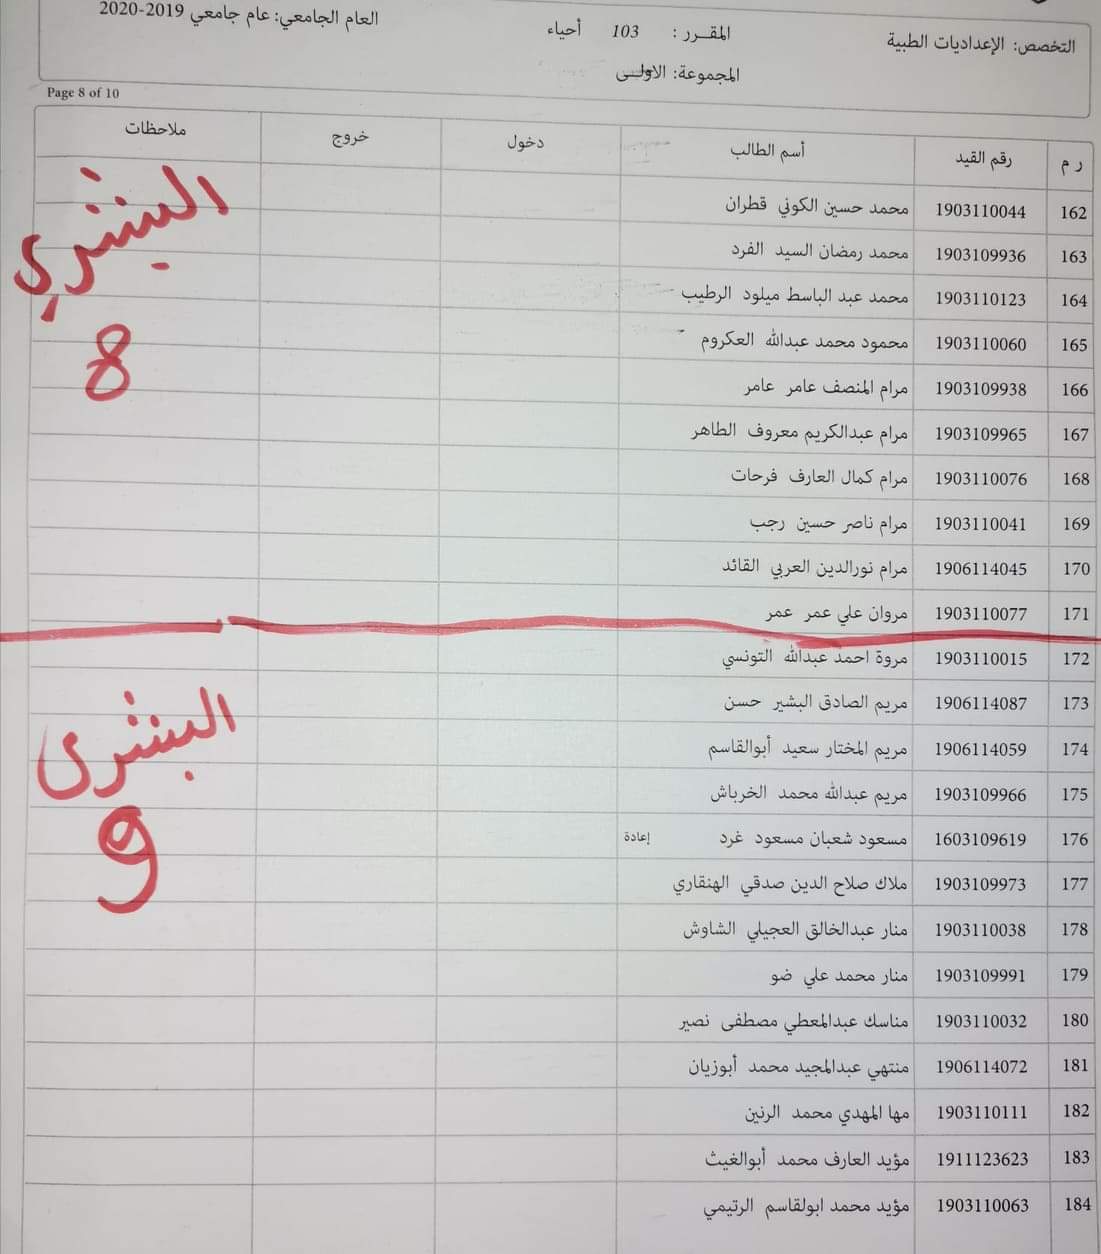 التخصص: الإعداديات الطبية المقـــرر : 103 أحياء العام الجامعي: عام جامعي 2019-2020
المجموعة: الاولــى
Page 8 of 10
ر م رقم القيد أسم الطالب دخول خروج ملاحظات
162 1903110044 محمد حسين الكوني قطران
163 1903109936 محمد رمضان السيد الفرد
164 1903110123 محمد عبد الباسط ميلود الرطيب
165 1903110060 محمود محمد عبدالله العكروم
166 1903109938 مرام المنصف عامر عامر
167 1903109965 مرام عبدالكريم معروف الطاهر
168 1903110076 مرام كمال العارف فرحات
169 1903110041 مرام ناصر حسين رجب
170 1906114045 مرام نورالدين العربي القائد
171 1903110077 مروان علي عمر عمر
البشري
8
172 1903110015 مروة احمد عبدالله التونسي
173 1906114087 مريم الصادق البشير حسن
174 1906114059 مريم المختار سعيد أبوالقاسم
175 1903109966 مريم عبدالله محمد الخرباش
176 1603109619 مسعود شعبان مسعود غرد إعادة
177 1903109973 ملاك صلاح الدين صدقي الهنقاري
178 1903110038 منار عبدالخالق العجيلي الشاوش
179 1903109991 منار محمد علي ضو
180 1903110032 مناسك عبدالمعطي مصطفى نصير
181 1906114072 منتهي عبدالمجيد محمد أبوزيان
182 1903110111 مها المهدي محمد الرنين
183 1911123623 مؤيد العارف محمد أبوالغيث
184 1903110063 مؤيد محمد ابولقاسم الرتيمي
البشرى
9